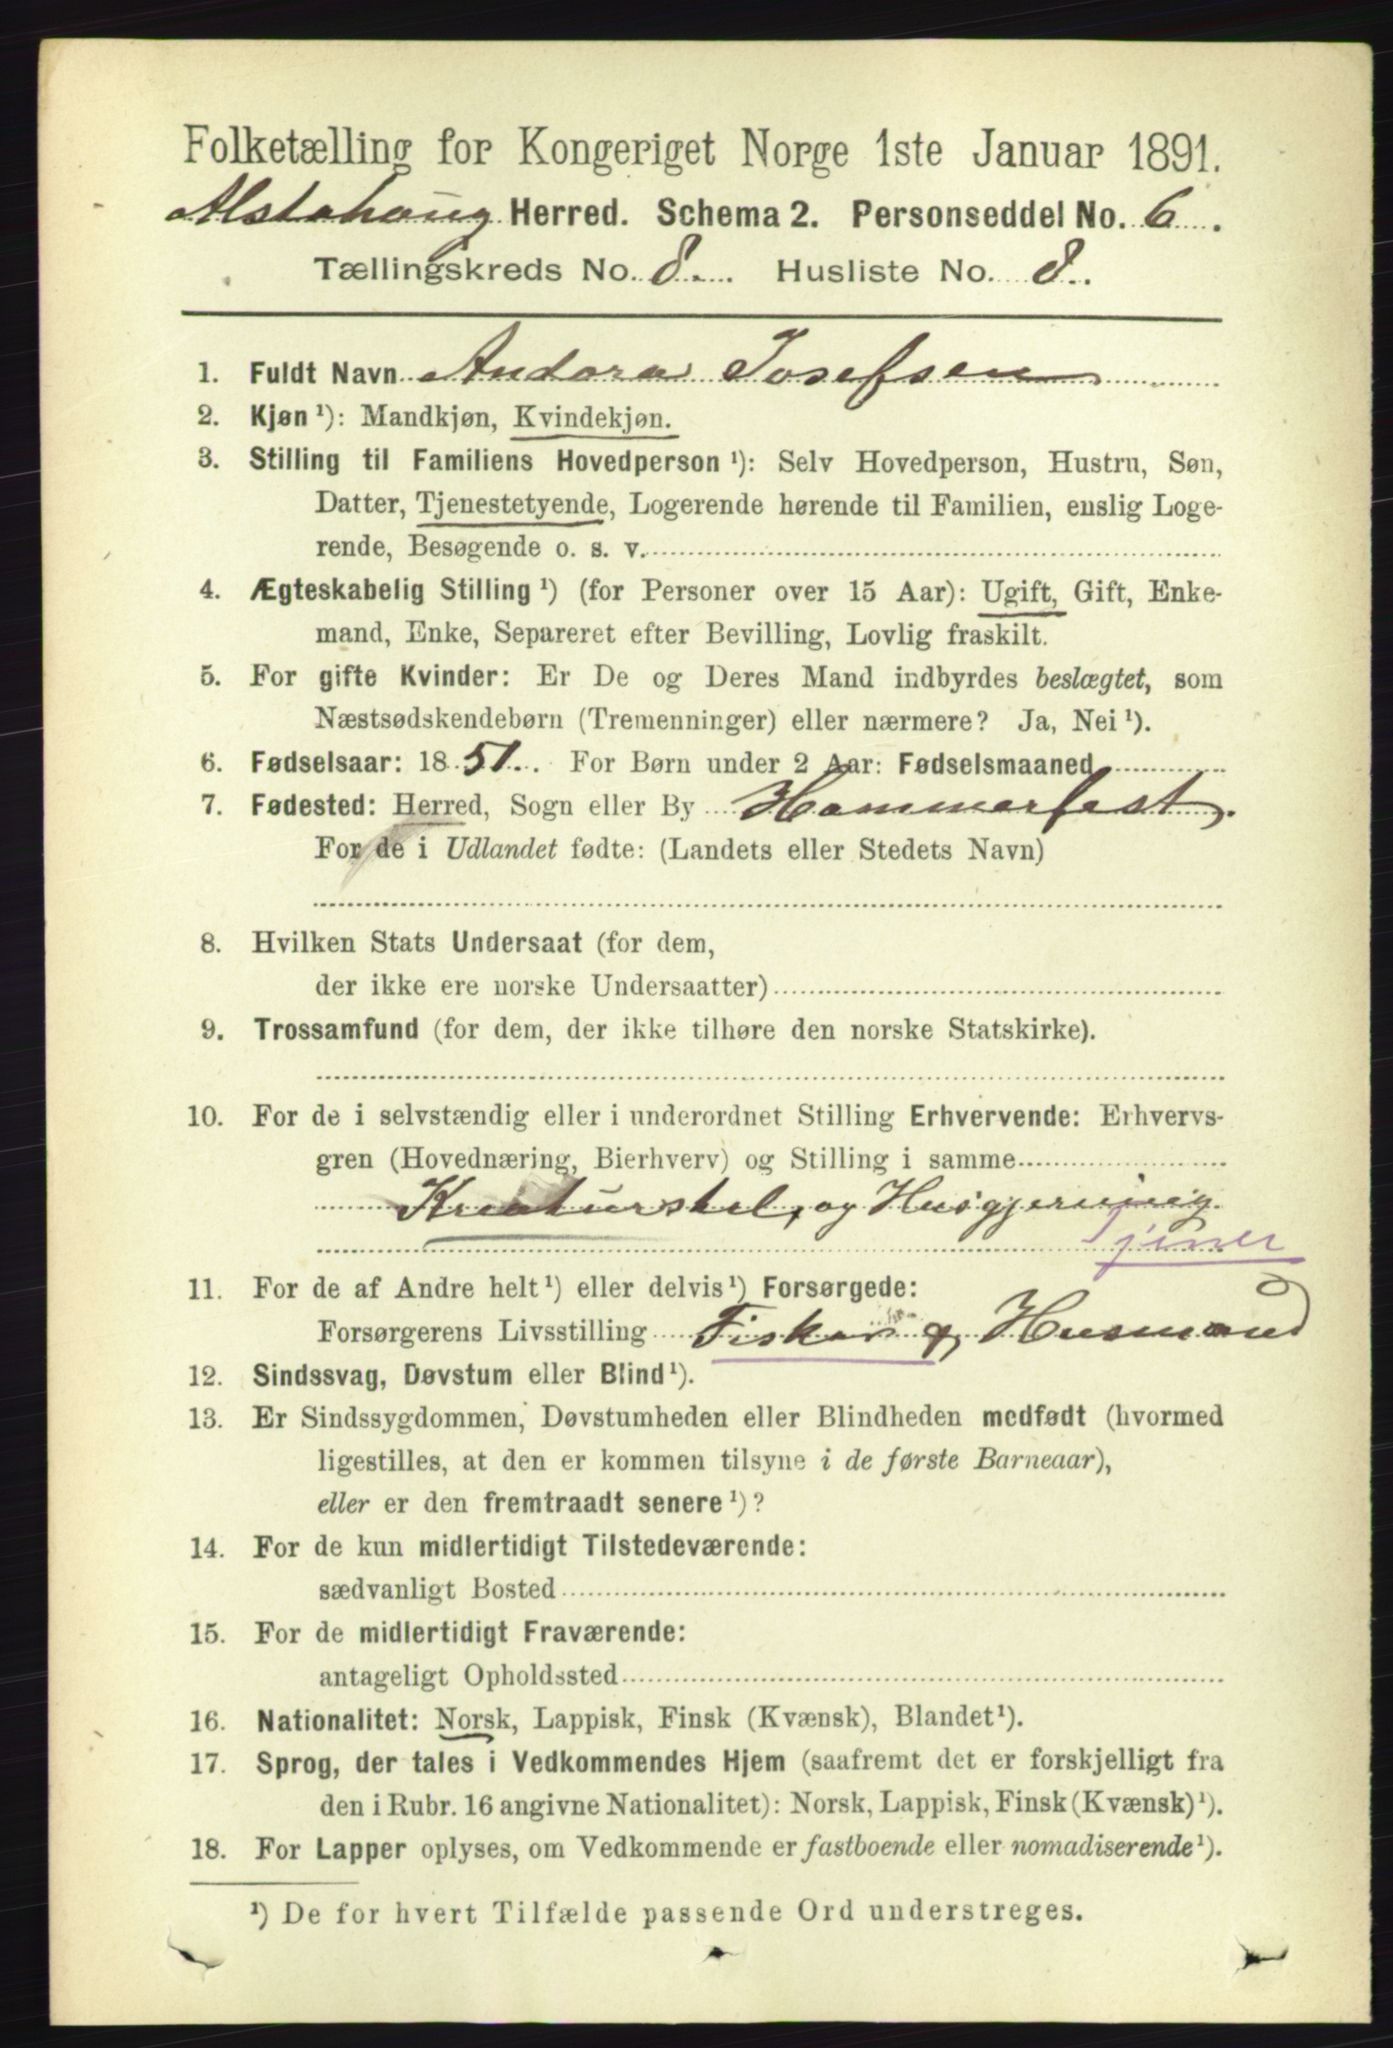 Folketælling for Kongeriget Norge 1ste Januar 1891.
Alstahoug Herred. Schema 2. Personseddel No. 6.
Tællingskreds No. 8. Husliste No. 8.
1. Fuldt Navn Andora Josefsen
2. Kjøn ¹): Mandkjøn, Kvindekjøn.
3. Stilling til Familiens Hovedperson ¹): Selv Hovedperson, Hustru, Søn,
Datter, Tjenestetyende, Logerende hørende til Familien, enslig Loge-
rende, Besøgende o. s. v.
4. Ægteskabelig Stilling ¹) (for Personer over 15 Aar): Ugift, Gift, Enke-
mand, Enke, Separeret efter Bevilling, Lovlig fraskilt.
5. For gifte Kvinder: Er De og Deres Mand indbyrdes beslægtet, som
Næstsødskendebørn (Tremenninger) eller nærmere? Ja, Nei ¹).
6. Fødselsaar: 1851. For Børn under 2 Aar: Fødselsmaaned
7. Fødested: Herred, Sogn eller By Hammerfest.
For de i Udlandet fødte: (Landets eller Stedets Navn)
8. Hvilken Stats Undersaat (for dem,
der ikke ere norske Undersaatter)
9. Trossamfund (for dem, der ikke tilhøre den norske Statskirke).
10. For de i selvstændig eller i underordnet Stilling Erhvervende: Erhvervs-
gren (Hovednæring, Bierhverv) og Stilling i samme
Kreaturstel, og Husgjerning
Tjener
11. For de af Andre helt ¹) eller delvis ¹) Forsørgede:
Forsørgerens Livsstilling Fisker og Husmand
12. Sindssvag, Døvstum eller Blind ¹).
13. Er Sindssygdommen, Døvstumheden eller Blindheden medfødt (hvormed
ligestilles, at den er kommen tilsyne i de første Barneaar),
eller er den fremtraadt senere ¹)?
14. For de kun midlertidigt Tilstedeværende:
sædvanligt Bosted
15. For de midlertidigt Fraværende:
antageligt Opholdssted
16. Nationalitet: Norsk, Lappisk, Finsk (Kvænsk), Blandet ¹).
17. Sprog, der tales i Vedkommendes Hjem (saafremt det er forskjelligt fra
den i Rubr. 16 angivne Nationalitet): Norsk, Lappisk, Finsk (Kvænsk) ¹).
18. For Lapper oplyses, om Vedkommende er fastboende eller nomadiserende ¹).
¹) De for hvert Tilfælde passende Ord understreges.